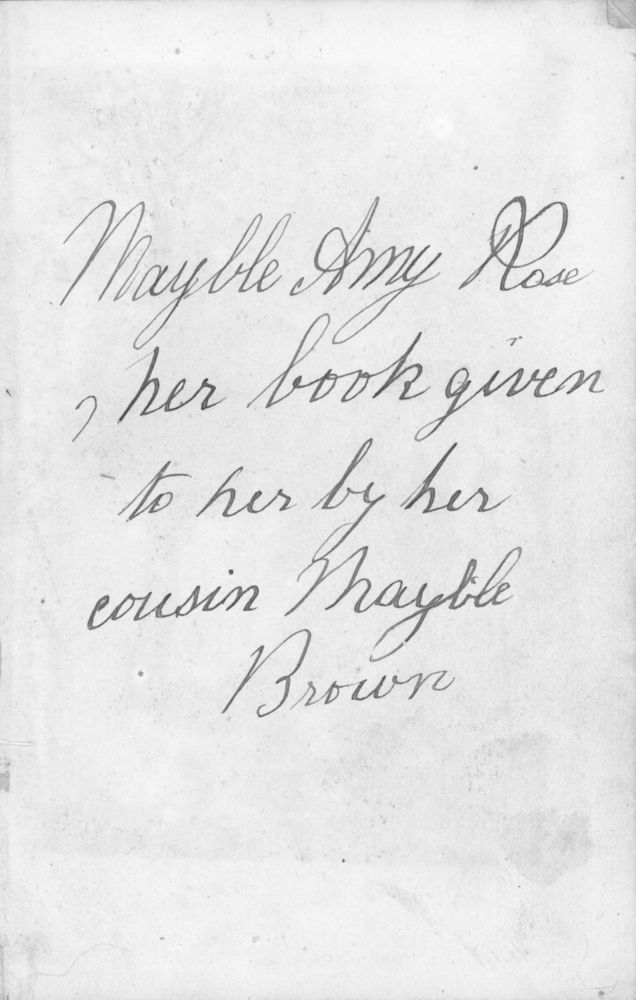 Mayble Amy Rose
, her book given
to her by her
cousin Mayble
Brown